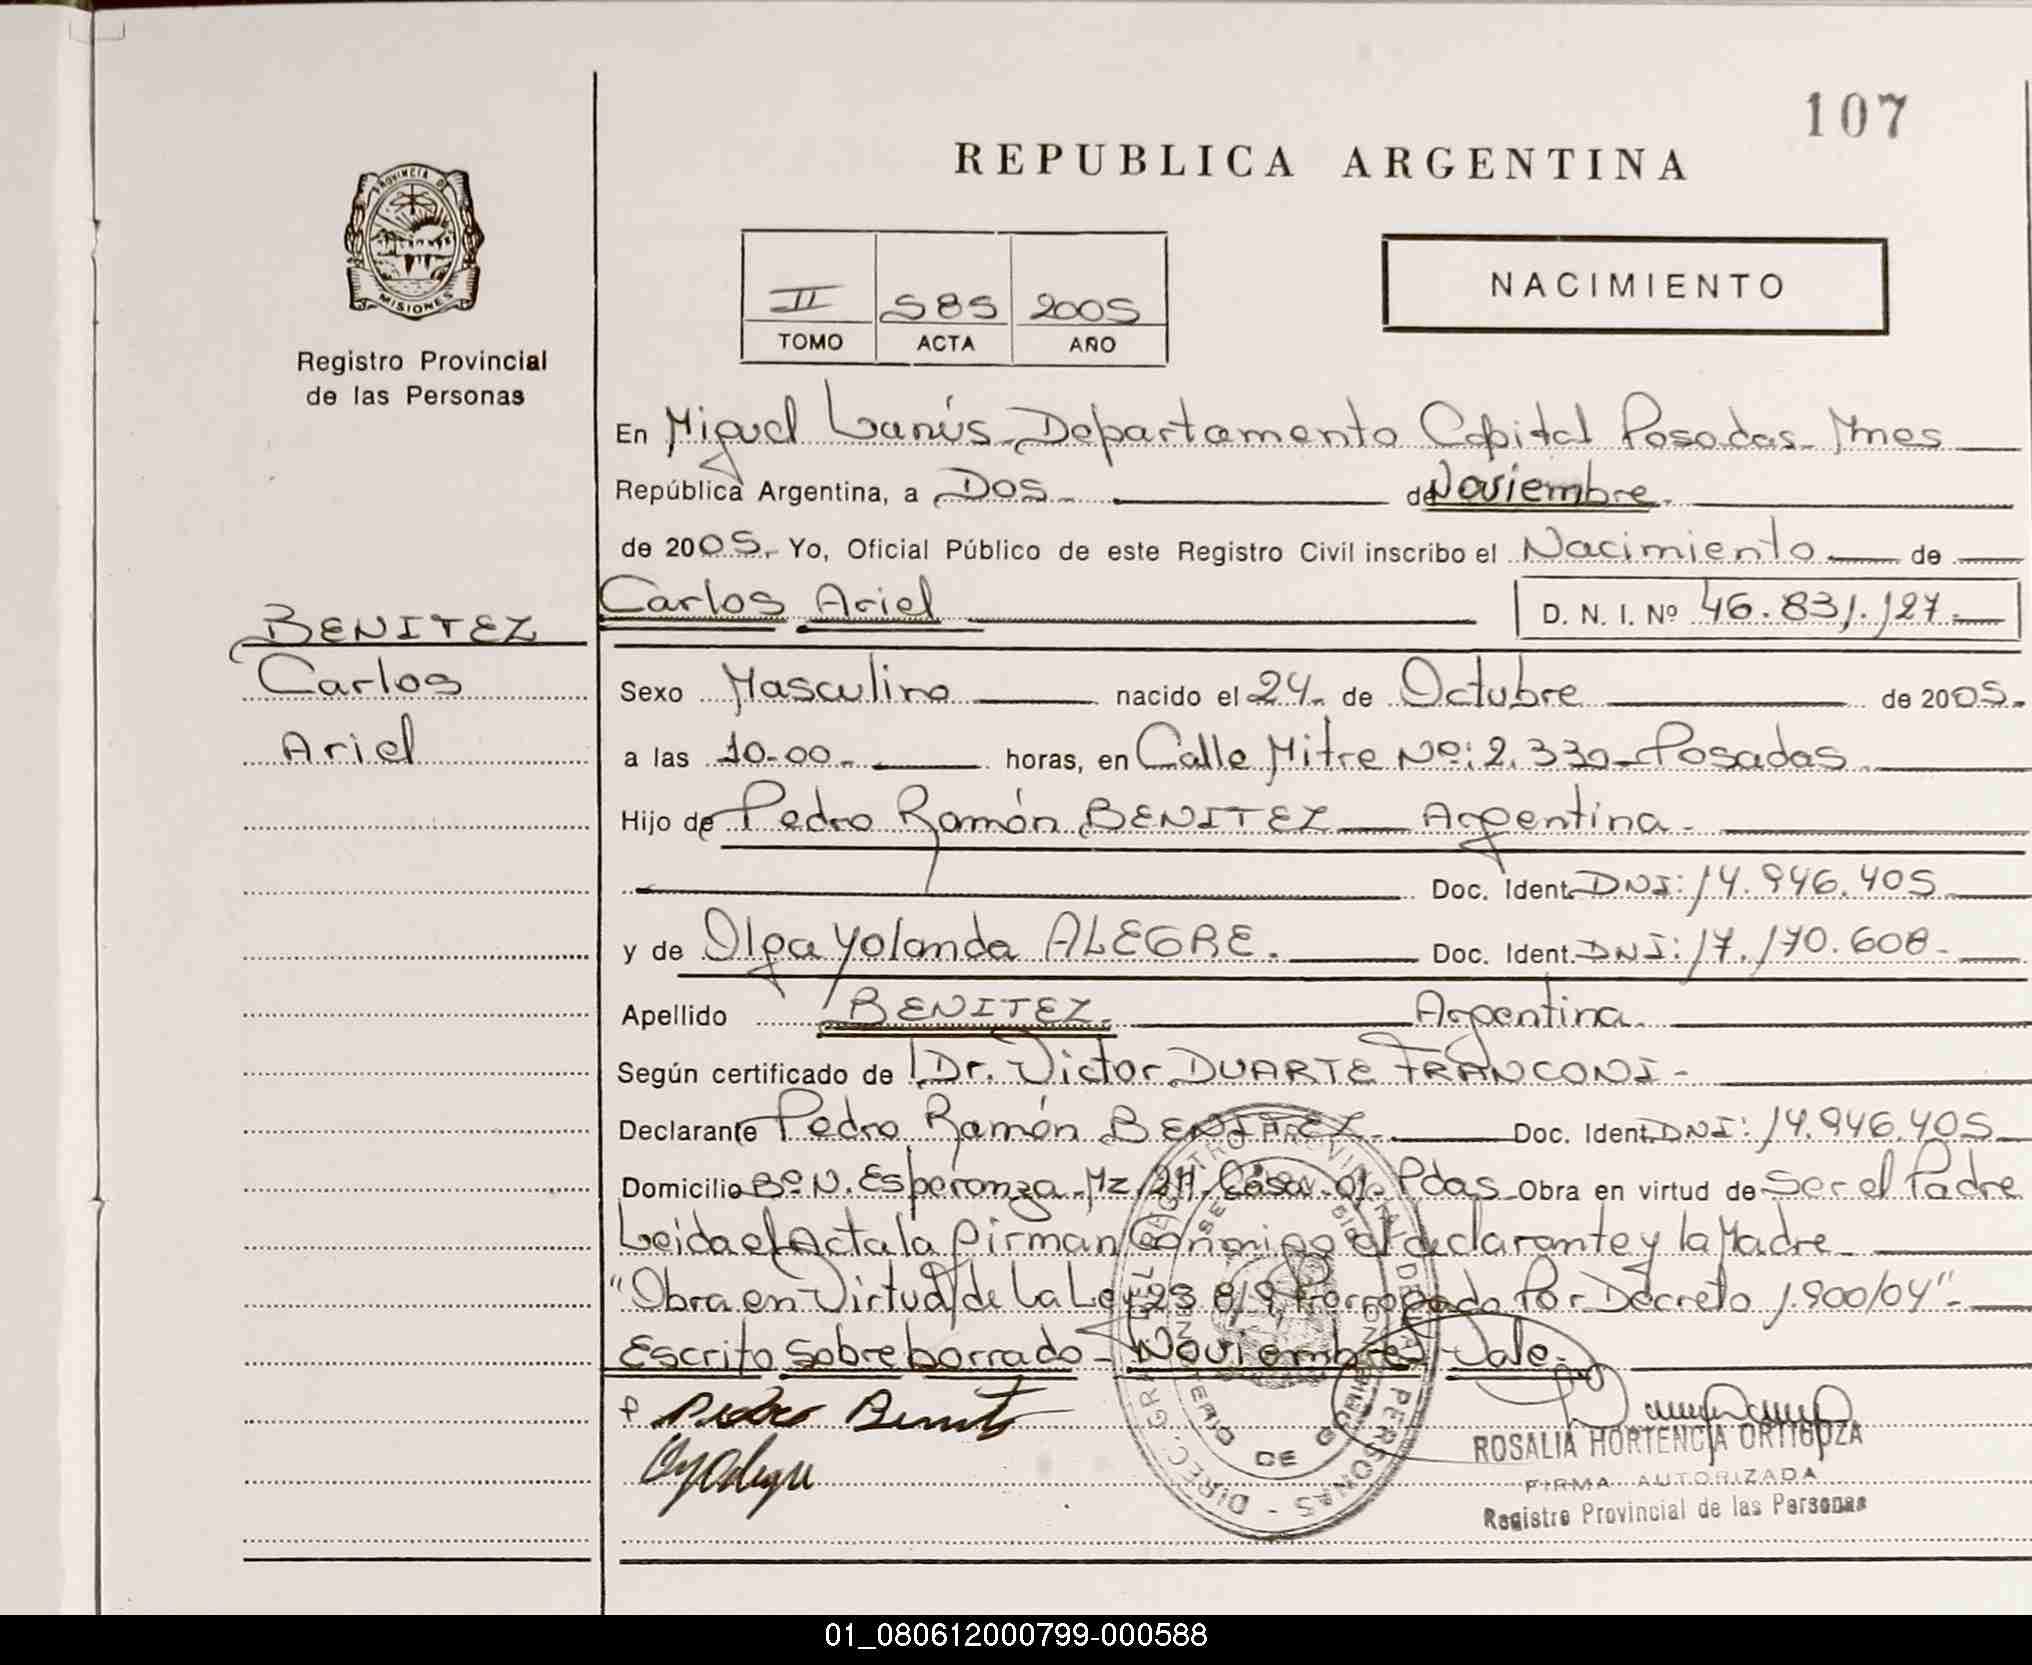 107
REPUBLICA ARGENTINA
PROVINCIA DE
MISIONES
Registro Provincial
de las Personas
II 585 2005
TOMO ACTA AÑO
NACIMIENTO
En Miguel Lanús - Departamento Capital Posadas - Mnes
República Argentina, a Dos de Noviembre.
de 2005. Yo, Oficial Público de este Registro Civil inscribo el Nacimiento de
Carlos Ariel D. N. I. Nº 46.831.127.
BENITEZ
Carlos
Ariel
Sexo Masculino nacido el 24. de Octubre de 2005.
a las 10-00. horas, en Calle Mitre Nº: 2.330 - Posadas.
Hijo de Pedro Ramón BENITEZ Argentina.
Doc. Ident. DNI: 14.946.405
y de Olga Yolanda ALEGRE. Doc. Ident. DNI: 17.170.608.
Apellido BENITEZ. Argentina.
Según certificado de Dr. Victor DUARTE FRANCONI -
Declarante Pedro Ramón BENITEZ. Doc. Ident. DNI: 14.946.405
Domicilio Bº N. Esperanza Mz. 2H. Casa 01. Pdas Obra en virtud de Ser el Padre
Leida el Acta la firman Conmigo el declarante y la Madre
"Obra en Virtud de La Ley 23 819 Prorrogado Por Decreto 1.900/04" -
Escrito Sobre borrado - Noviembre - Vale.
Pedro Benitez
ROSALIA HORTENCIA ORTIGOZA
FIRMA AUTORIZADA
Registro Provincial de las Personas
01_080612000799-000588